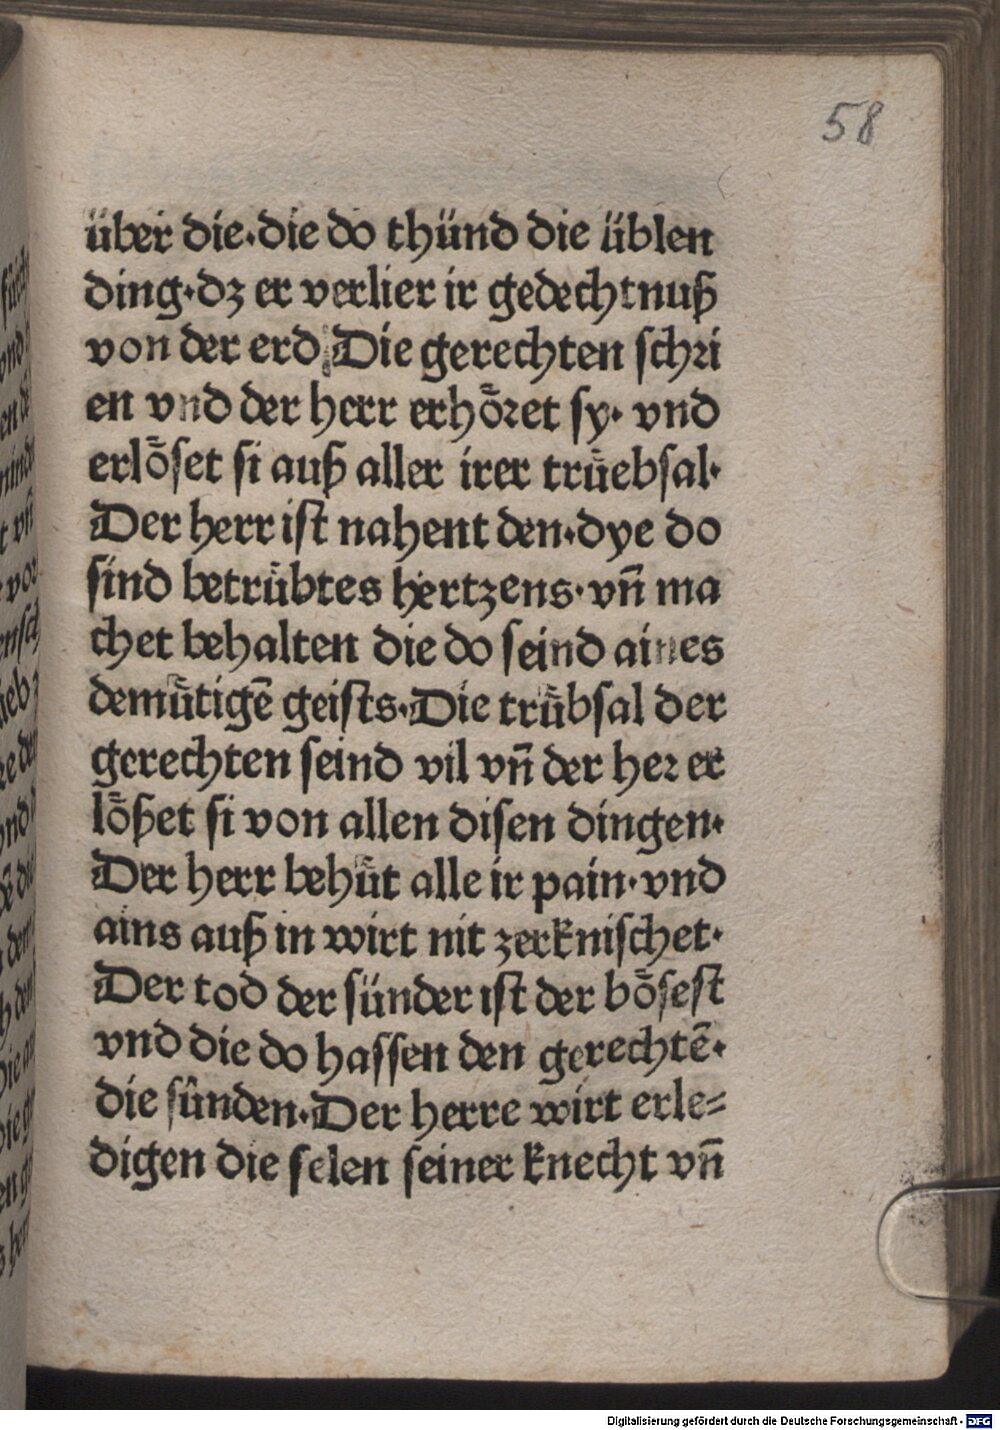 58
über die·die do thünd die üblen
ding·dz er verlier ir gedechtnuß
von der erd Die gerechten schri
en vnd der herr erhöꝛet sy· vnd
erlöset si auß aller irer trüebsal·
Der herr ist nahent den·dye do
sind betrübtes hertzens·vn̄ ma
chet behalten die do seind aines
demütigē geists·Die trübsal der
gerechten seind vil vn̄ der heꝛ er
lößet si von allen disen dingen·
Der herr behüt alle ir pain·vnd
ains auß in wirt nit zerknischet·
Der tod der sünder ist der bösest
vnd die do hassen den gerechtē·
die sûnden·Der herre wirt erle⸗
digen die selen seiner knecht vn̄
Digitalisierung gefördert durch die Deutsche Forschungsgemeinschaft - DFG